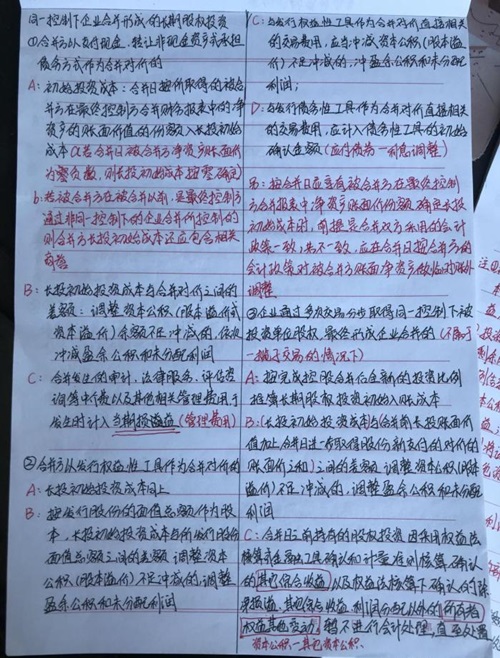 同一控制下企业合并形成的长期股权投资
①合并方以支付现金、转让非现金资产或承担
债务方式作为合并对价的
A：初始投资成本：合并日按价取得的被合
并方在最终控制方合并财务报表中的净
资产的账面价值的份额入长投初始
成本（如若合并日被合并方净资产账面价
为零负数，则长投初始成本按零确定）
b：若被合并方在被合并以前，是最终控制方
通过非同一控制下的企业合并所控制的
则合并方长投初始成本还应包含相关
商誉
B：长投初始投资成本与合并对价之间的
差额：调整资本公积（股本溢价或
资本溢价）余额不足冲减的，依次
冲减盈余公积和未分配利润
C：合并发生的审计、法律服务、评估咨
询等中介费以及其他相关管理费用于
发生时计入当期损益（管理费用）
②合并方以发行权益性工具作为合并对价的
A：长投初始投资成本同上
B：按发行股份的面值总额作为股
本，长投初始投资成本与所发行股份
面值总额之间的差额 调整资本
公积（股本溢价）不足冲减的，调整
盈余公积和未分配利润
C：与发行权益性工具作为合并对价直接相关
的交易费用，应当冲减资本公积（股本溢
价）不足冲减的，冲盈余公积和未分配
利润；
D：与发行债务性工具作为合并对价直接相关
的交易费用，应计入债务性工具的初始
确认金额（应付债券—利息调整）
B：按合并日应享有被合并方在最终控制方
合并报表中净资产账面价份额确定长投
初始成本时，前提是合并双方采用的会计
政策一致；若不一致，应在合并日按合并方的
会计政策对被合并方账面净资产做
调整
③企业通过多次交易分步取得同一控制下被
投资单位股权，最终形成企业合并的（不属于
一揽子交易的情况下）
A：按完成控股合并后全新的投资比例
推算长期股权投资初始入账成本
B：（长投初始投资成本）与（合并前长投账面价
值加上合并日进一步取得股份新支付的对价的
账面价之和）之间的差额 调整资本公积（股本
溢价）不足冲减的，调整盈余公积和未分配
利润
C：合并日之前持有的股权投资 因采用权益法
核算或金融工具确认和计量准则核算确认
的其他综合收益以及权益法核算下确认的除
净损益、其他综合收益、利润分配以外的所有者
权益其他变动，暂不进行会计处理，直至处置
资本公积—其他资本公积